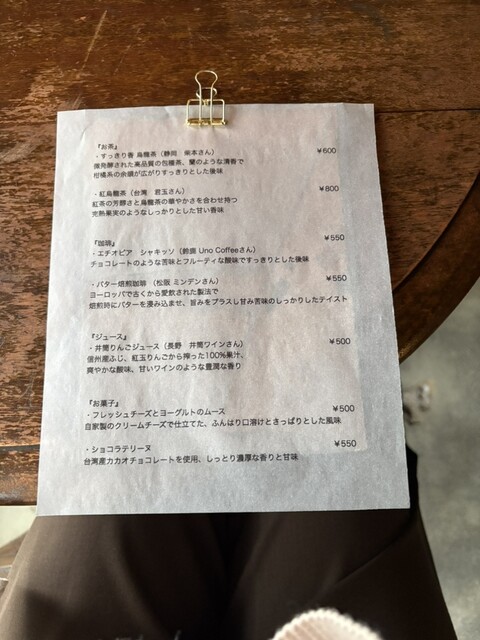 『お茶』
・すっきり香 烏龍茶（静岡 柴本さん） ¥600
微発酵された高品質の包種茶、蘭のような清香で
柑橘系の余韻が広がりすっきりとした後味
・紅烏龍茶（台湾 君玉さん） ¥800
紅茶の芳醇さと烏龍茶の華やかさを合わせ持つ
完熟果実のようなしっかりとした甘い香味
『珈琲』
・エチオピア シャキッソ（鈴鹿 Uno Coffeeさん） ¥550
チョコレートのような苦味とフルーティな酸味ですっきりとした後味
・バター焙煎珈琲（松阪 ミンデンさん） ¥550
ヨーロッパで古くから愛飲された製法で
焙煎時にバターを浸み込ませ、旨みをプラスし甘み苦味のしっかりしたテイスト
『ジュース』
・井筒りんごジュース（長野 井筒ワインさん） ¥500
信州産ふじ、紅玉りんごから搾った100%果汁、
爽やかな酸味、甘いワインのような豊潤な香り
『お菓子』
・フレッシュチーズとヨーグルトのムース ¥500
自家製のクリームチーズで仕立てた、ふんはり口溶けとさっぱりとした風味
・ショコラテリーヌ ¥550
台湾産カカオチョコレートを使用、しっとり濃厚な香りと甘味